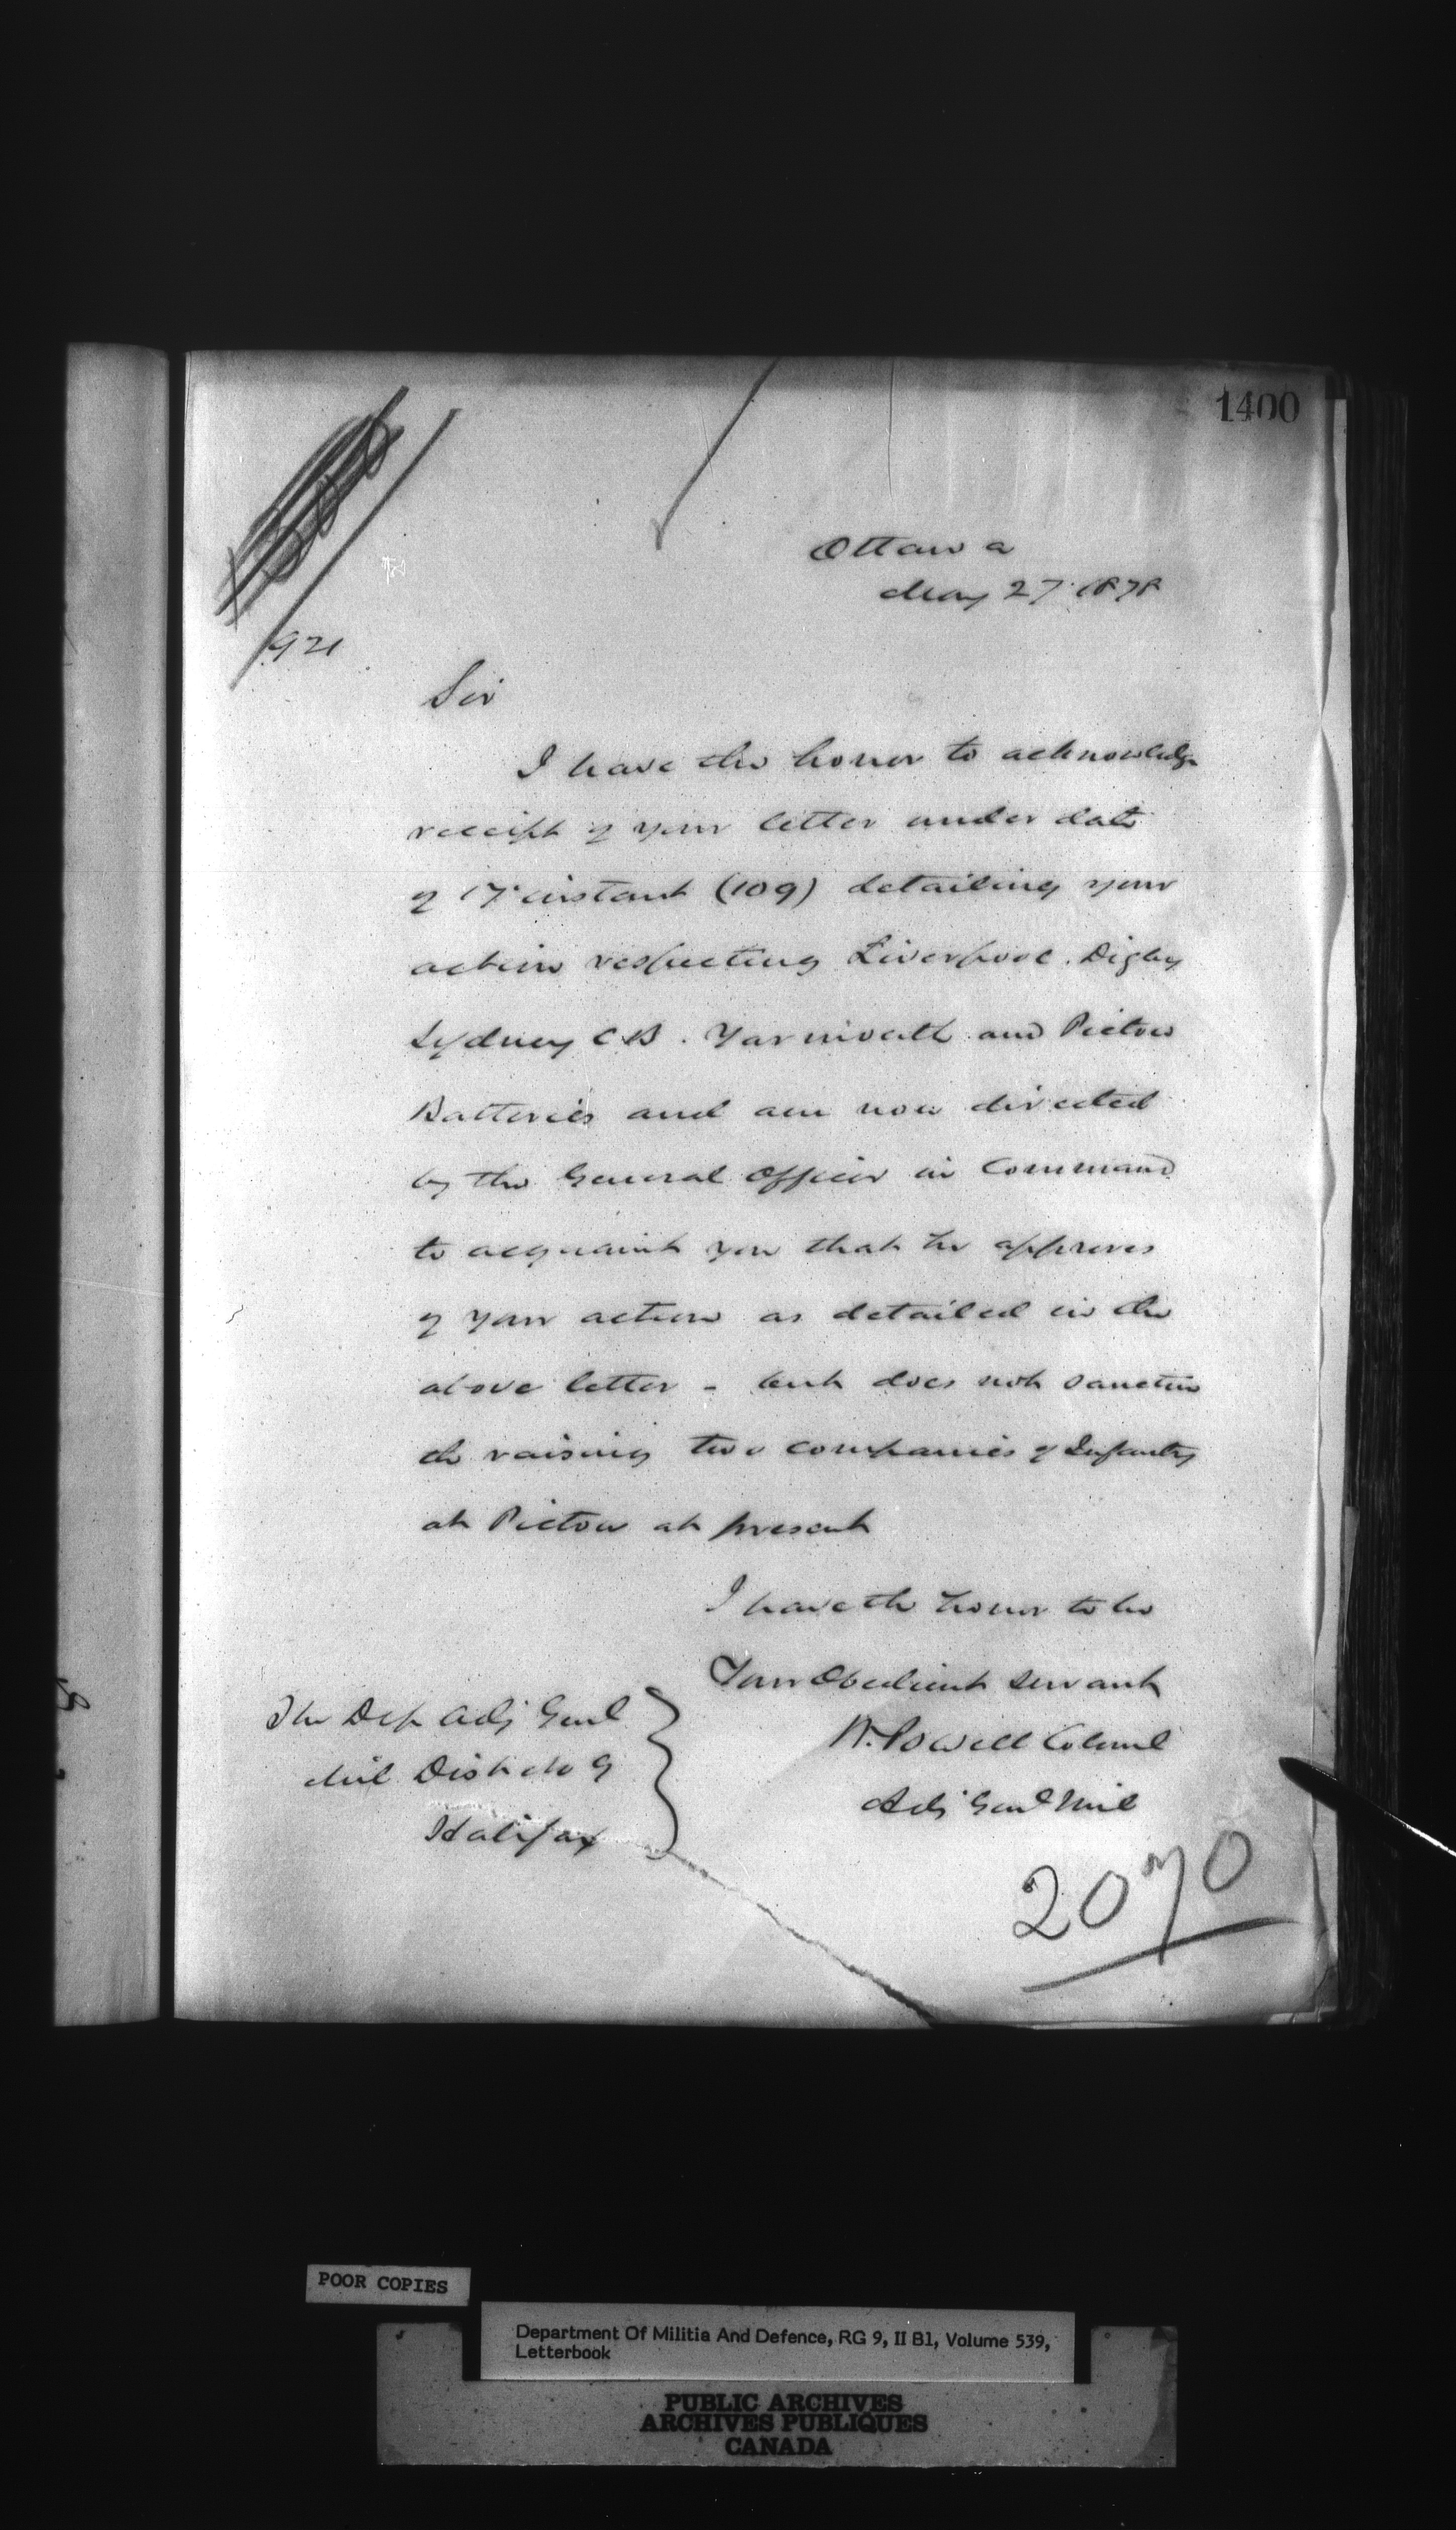 1400
Ottawa
May 27 1878
921
Sir
I have the honor to acknowledge
receipt of your letter under date
of 17 instant (109) detailing your
action respecting Liverpool. Digby
Sydney CB. Yarmouth and Pictou
Batteries and am now directed
by the General Officer in Command
to acquaint you that he approves
of your action as detailed in the
above letter - but does not sanction
the raising two companies of Infantry
at Pictou at present
I have the honor to be
Your Obedient Servant
W. Powell Colonel
Adj Genl Mil
The Dep Adj Genl
Mil Dist No 9
Halifax
2070
POOR COPIES
Department Of Militia And Defence, RG 9, II B1, Volume 539,
Letterbook
PUBLIC ARCHIVES
ARCHIVES PUBLIQUES
CANADA